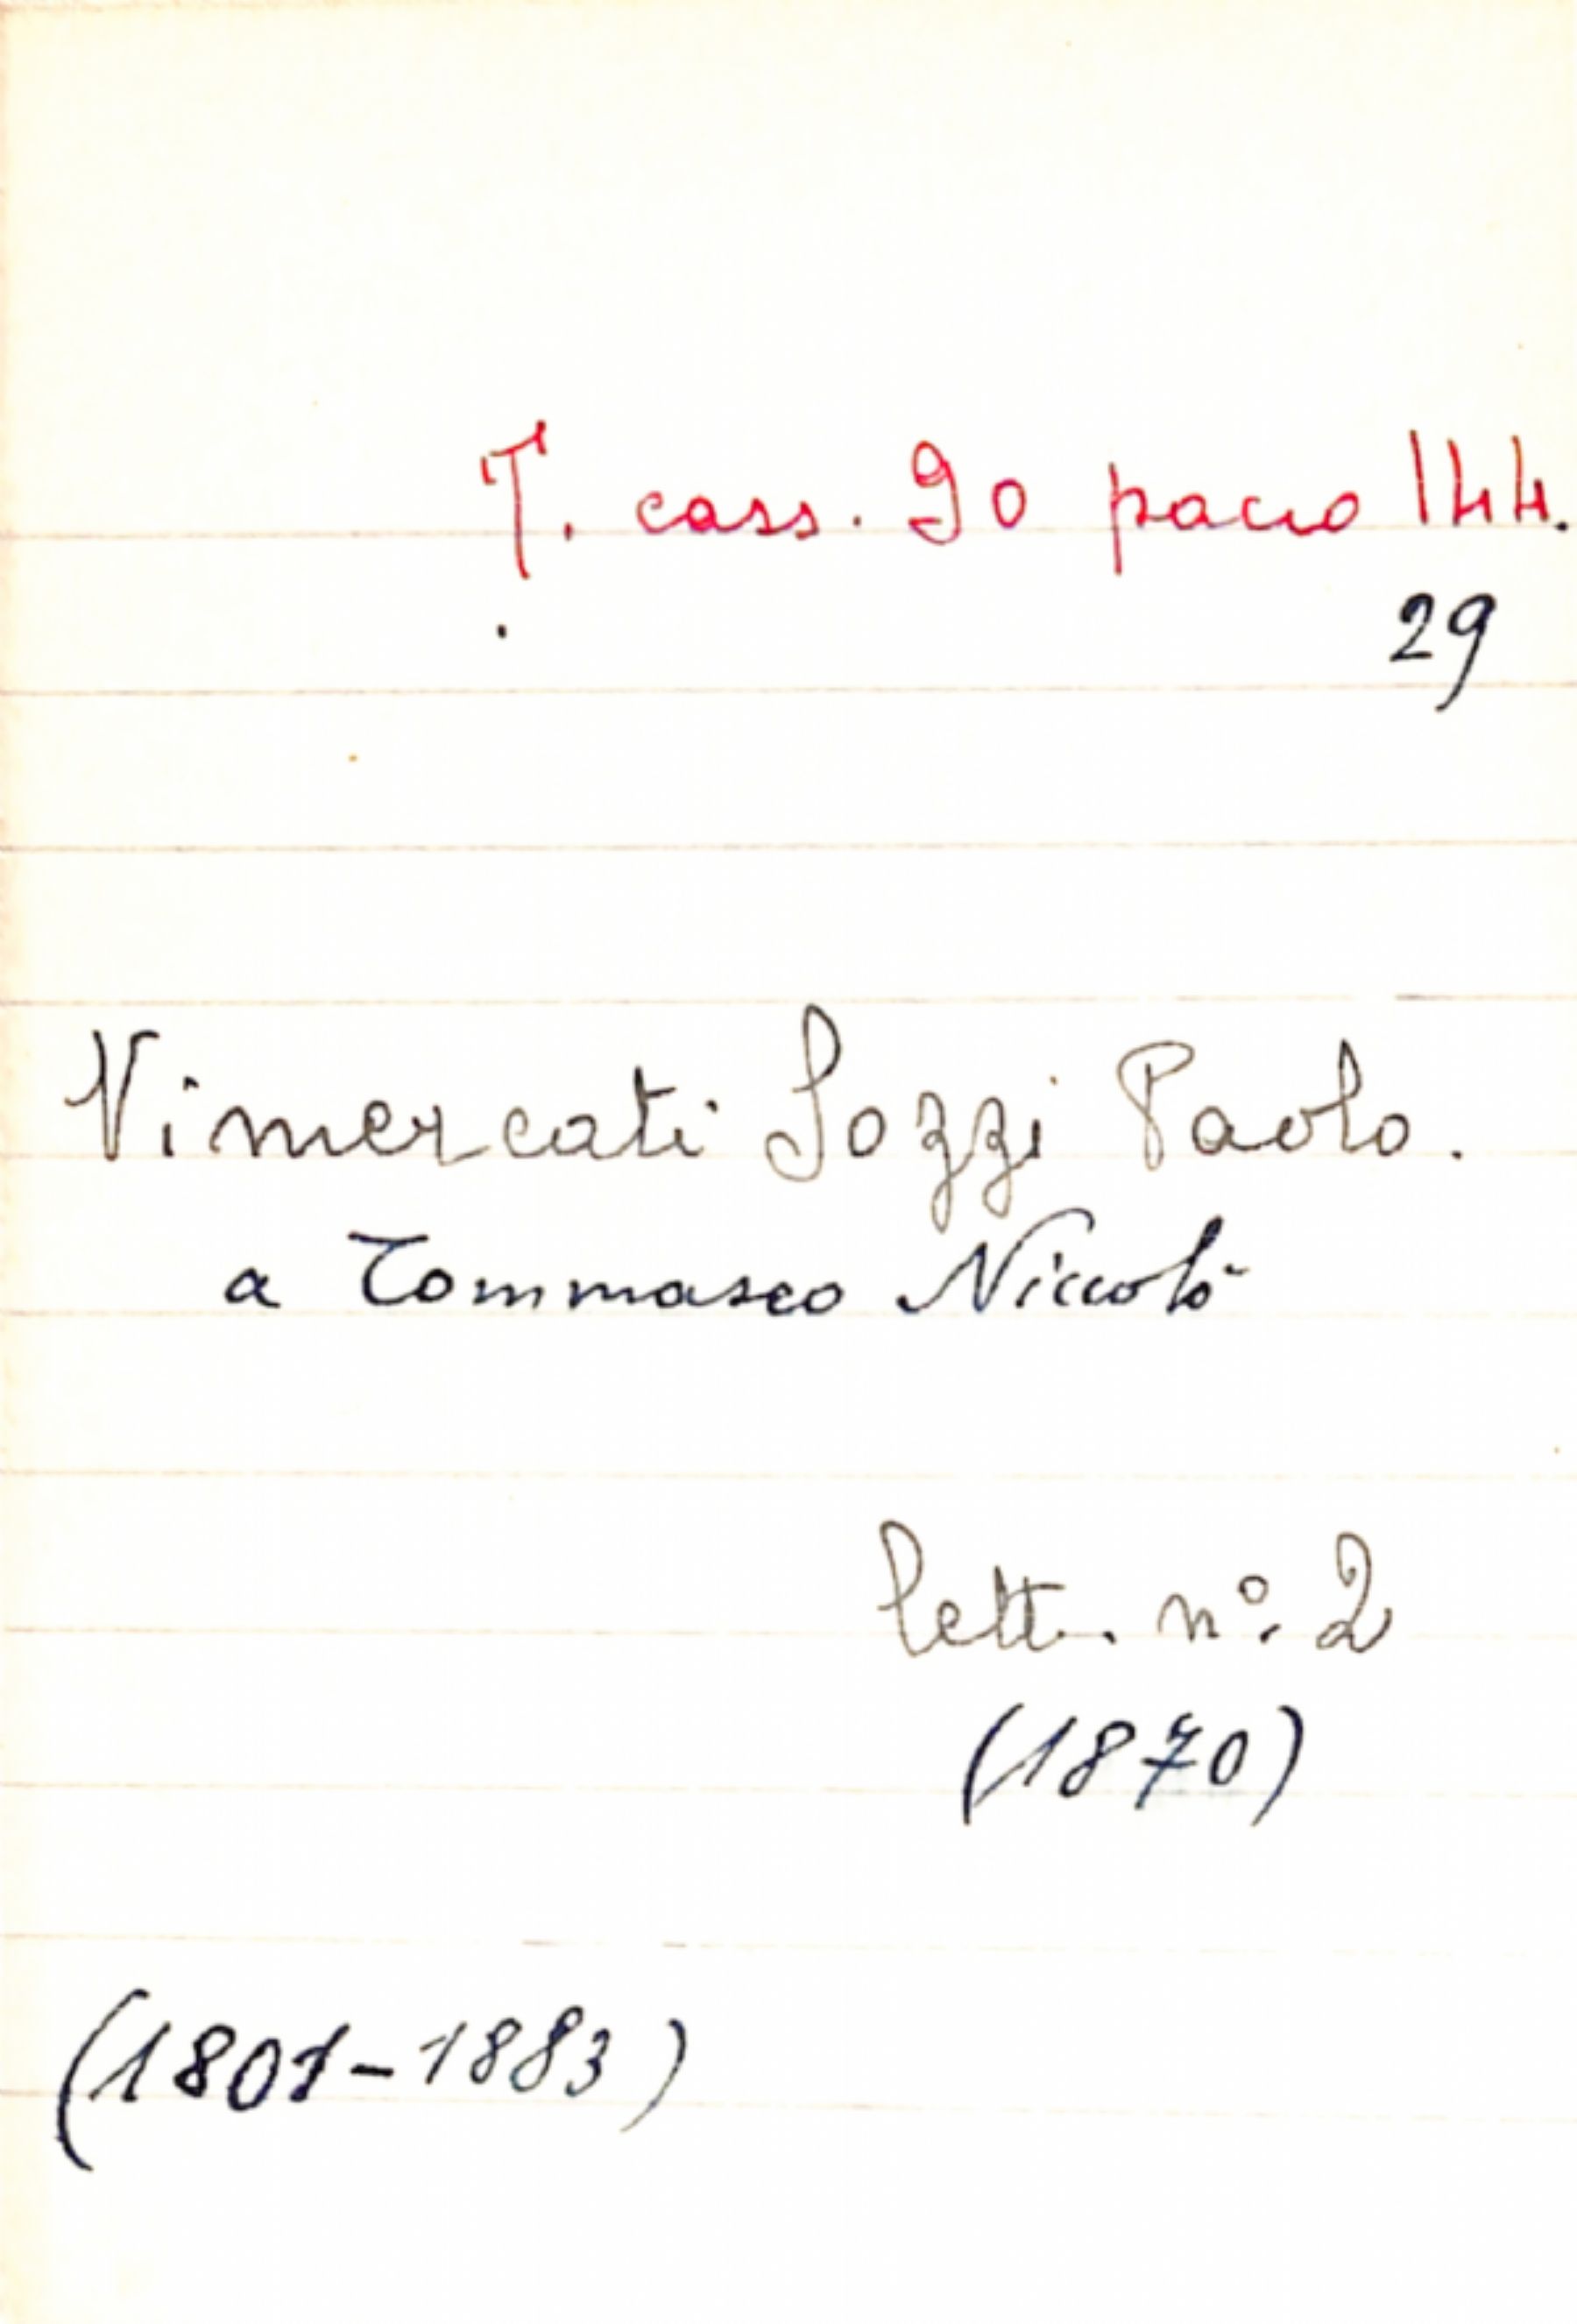 T. cass. 90 pacco 144.
29
Vimercati Sozzi Paolo.
a Tommaseo Niccolò
lett. n.º 2
(1870)
(1801-1883)